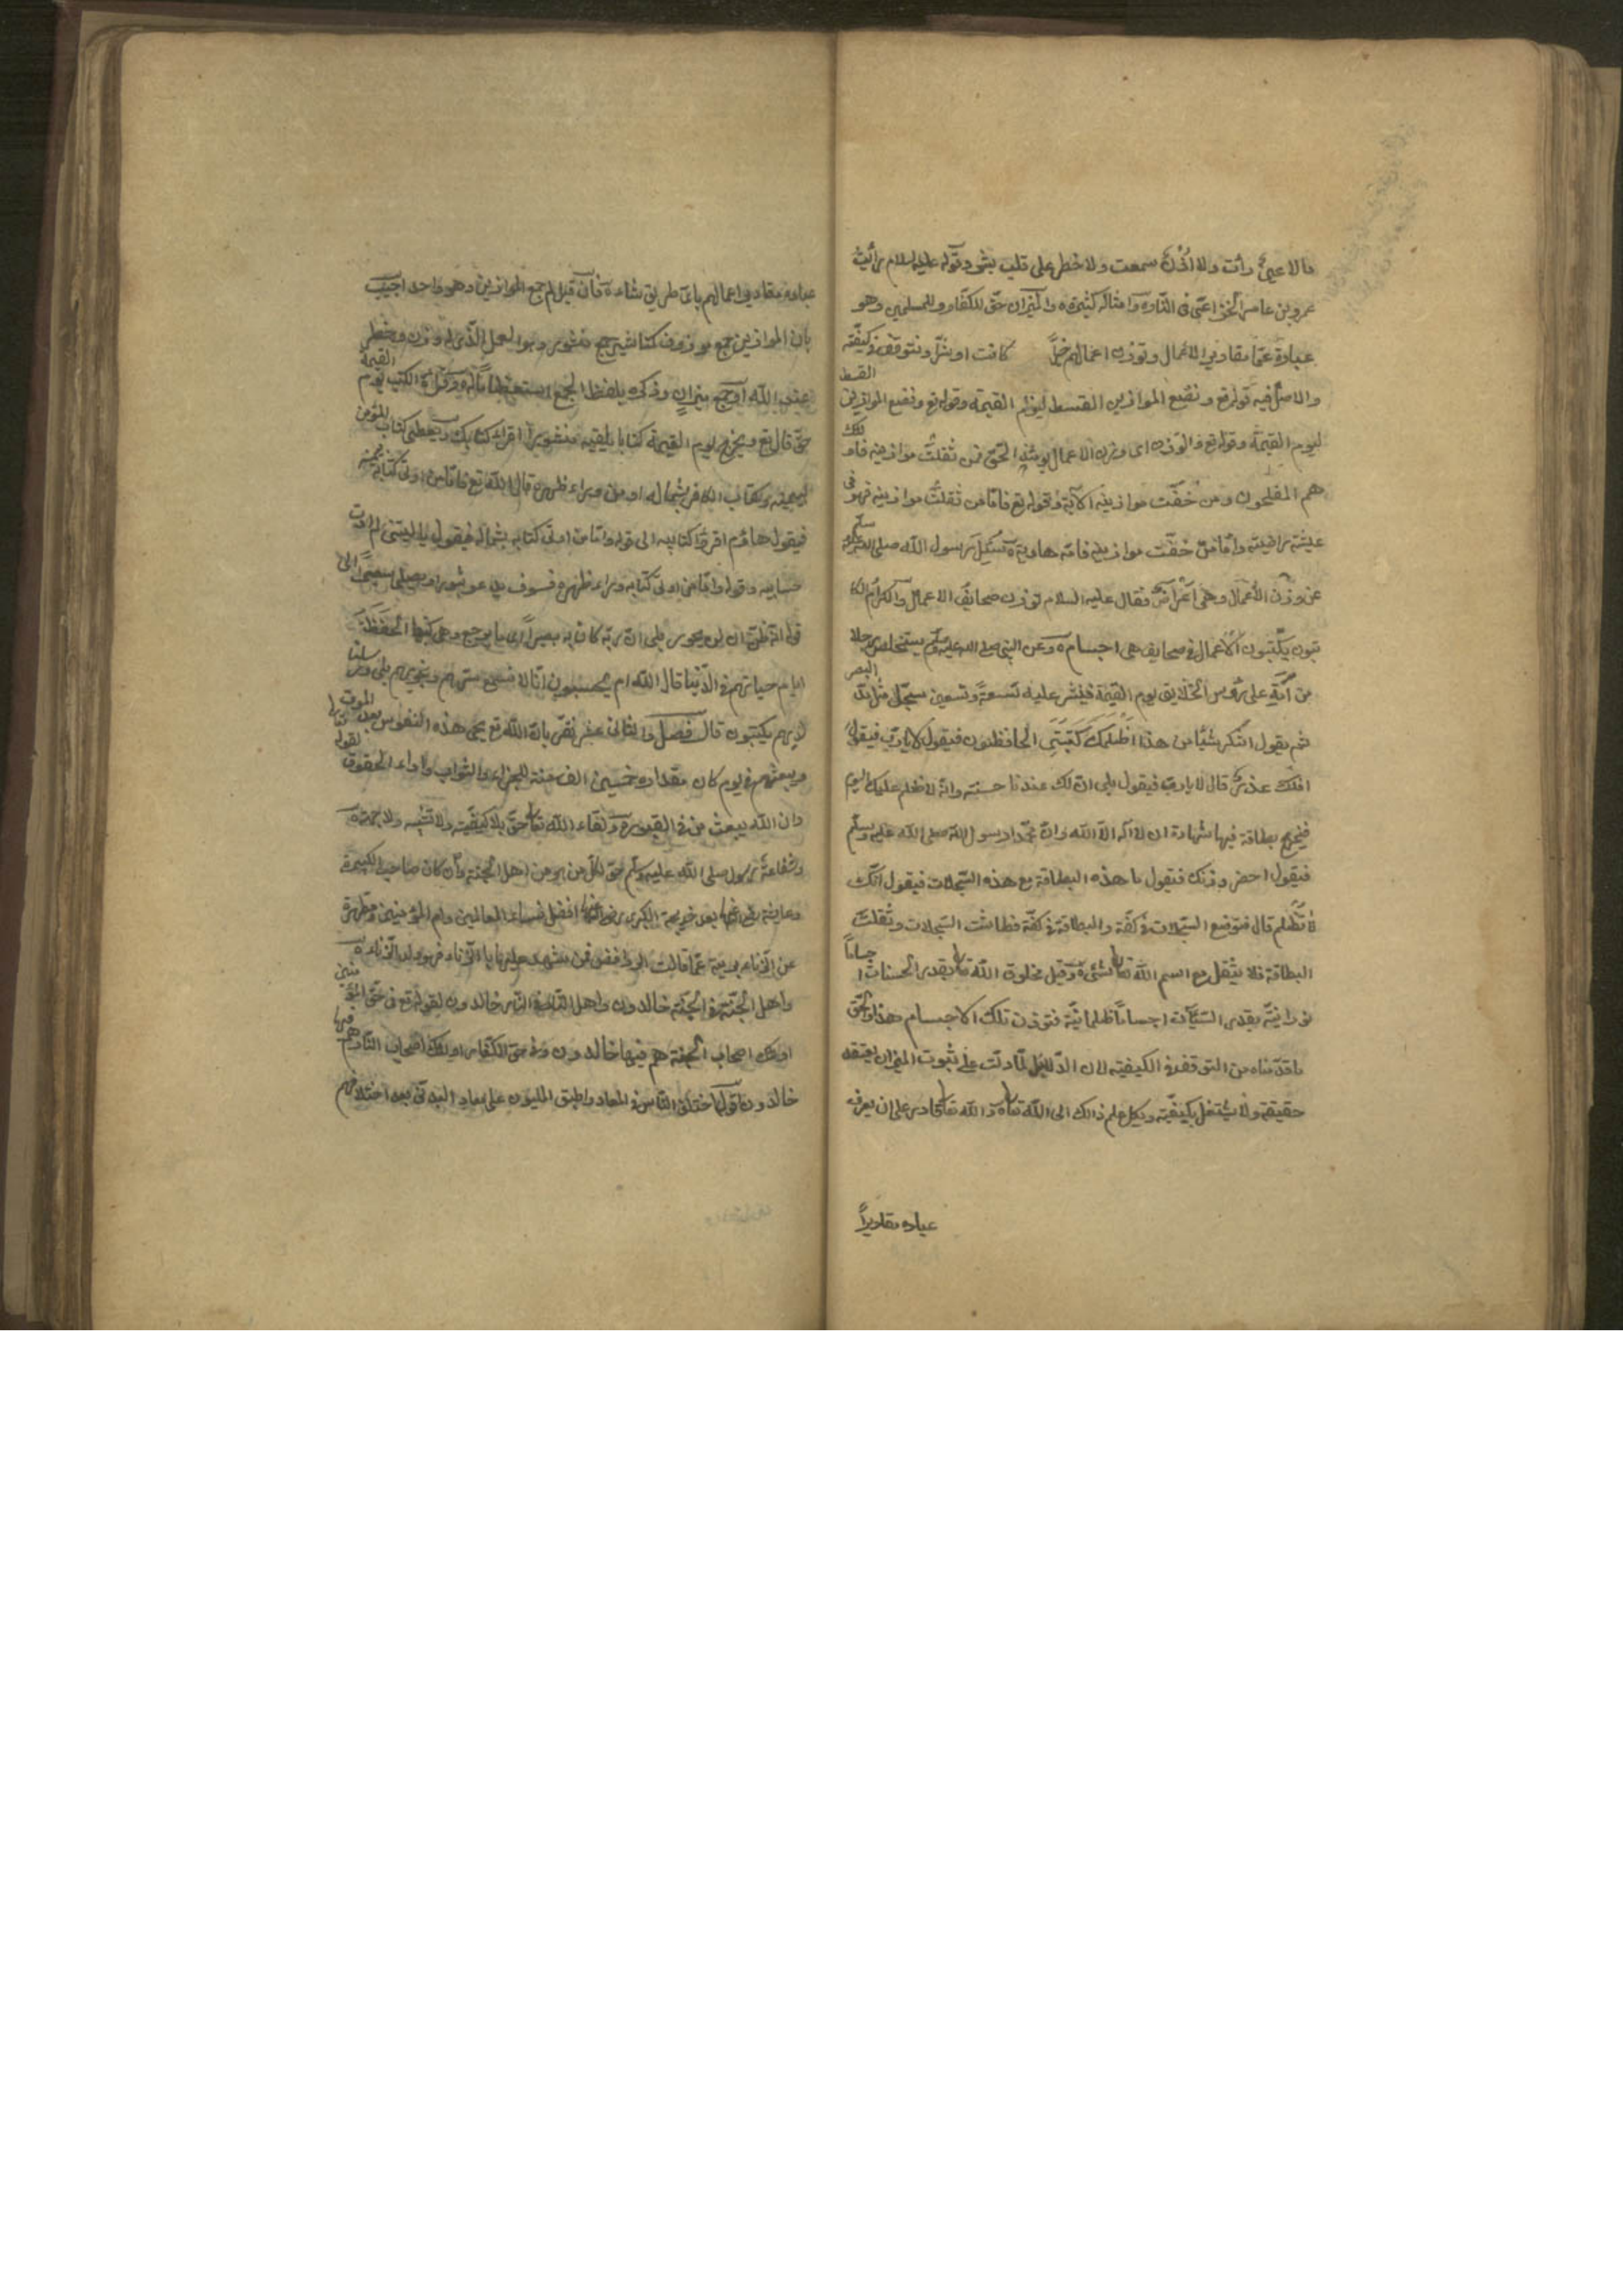 مالا عينٌ رأت ولا اُذُنٌ سمعت ولا خطر على قلب بشر وقوله عليه السلام رأيت
عمرو بن عامر الخزاعي في النار وامثاله كثيرة والميزان حق للكفار وللمسلمين وهو
عبارة عمّا مقادير الاعمال وتوزن اعمالهم خيرًا كانت او شرًّا ونتوقف في كيفيّته
والاصل فيه قوله تع ونضع الموازين القسط ليوم القيمة وقوله تع ونضع الموازين القسط
ليوم القيمة وقوله تع والوزن اى وزن الاعمال يومئذ الحقّ فمن ثقلت موازينه فاولئك
هم المفلحون ومن خفّت موازينه الآية وقوله تع فامّا من ثقلت موازينه فهو فى
عيشة راضية وامّا من خفّت موازينه فامّه هاوية سُئِلَ رسول الله صلى الله عليه وسلم
عن وزن الأعمال وهى اَعْرَاضٌ فقال عليه السلام توزن صحايف الاعمال والكرام الكا
تبون يكتبون الأعمال فى صحايف هى اجسام وعن النبى صلى الله عليه وسلم يستخلص رجلا
من اُمّتى على رؤس الخلايق يوم القيمة فينشر عليه تسعةً وتسعين سجلّ مثل مدّ البصر
ثم يقول اتنكر شيًا من هذا اَظَلَمَكَ كَتَبَتِى الحافظون فيقول لا يا ربّ فيقول
افلك عذر قال لا يا ربّ فيقول بلى انّ لك عندنا حسنة وانّه لا ظلم عليك اليوم
فيخرج بطاقة فيها شهادة ان لا اله الّا الله وانّ محمّدا رسول الله صلى الله عليه وسلم
فيقول احضر وزنك فيقول ما هذه البطاقة مع هذه السّجلات فيقول انّك
لا تُظلم قال فتوضع السّجلات فى كفّة والبطاقة فى كفّة فطاشت السّجلات وثقلت
البطاقة فلا يثقل مع اسم الله تعالى شئ وقيل مخلوق الله تعالى بقدر الحسنات اجساماً
نورانيّة بقدر السّيّآت اجساماً ظلمانيّة فتوزن تلك الاجسام هذا والحق
ما قدّمناه من التوقف فى الكيفية لان الدّليل لمّا دلّت على ثبوت الميزان يعتقد
حقيقة ولا يشتغل بكيفيّته ويكل علم ذالك الى الله تعالى والله تعالى قادر على ان يعرف
عباده مقاديرَ
عباده مقادير اعمالهم باىّ طريق شاء فان قيل لم جمع الموازين وهو واحد اجيب
بان الموازين جمع موزون كمناشير جمع منشور وهو العمل الّذى له وزن وخطر
عند الله او جمع ميزان وذكره بلفظ الجمع استعظاماً له وقراءة الكتب يوم القيمة
حقّ قال تع ويخرج له يوم القيمة كتابا يلقيه منشورا اقرأ كتابك ويعطى كتاب المؤمن
بيمينه وكتاب الكافر بشماله او من وراء ظهره قال الله تع فامّا من اوتى كتابه بيمينه
فيقول هاؤم اقرؤا كتابيه الى قوله وامّا من اوتى كتابه بشماله فيقول يا ليتنى لم اوت
حسابيه وقوله وامّا من اوتى كتابه وراء ظهره فسوف يدعو ثبورا ويصلى سعيراً الى
قوله انّه ظنّ ان لن يحور بلى ان ربّه كان به بصيراً اى ما يرجع وهى كتبها الحَفَظَةُ
ايام حياتهم فى الدّنيا قال الله ام يحسبون انّا لا نسمع سرّهم ونجويهم بلى ورسلنا
لديهم يكتبون قال فصل والثانى عشر نقرّ بانّ الله تع يحيى هذه النفوس بعد الموت
ويبعثهم فى يوم كان مقداره خمسين الف سنة للجزاء والثواب واداء الحقوق لقوله
وان الله يبعث من فى القبور ولقاء الله تعالى حقّ بلا كيفيّة ولا تشبيه ولا جهة
وشفاعة رسول صلى الله عليه وسلم حق لكلّ من هو من اهل الجنّة وان كان صاحب الكبيرة
وعايشة رضى الله عنها بعد خديجة الكبرى رضى الله عنها افضل نساء العالمين وام المؤمنين ومطهرة
عن الزّناء بريئة عمّا قالت الروافض فمن شهد عليها بالزّناء فهو ولد الزّناء
واهل الجنّة فى الجنّة خالدون واهل النّار فى النّار خالدون لقوله تع فى حقّ المؤمنين
اولئك اصحاب الجنة هم فيها خالدون وفى حقّ الكفّار اولئك اصحاب النّار هم فيها
خالدون اختلف النّاس فى المعاد واطبق المليون على معاد البدنى بعد اختلافهم